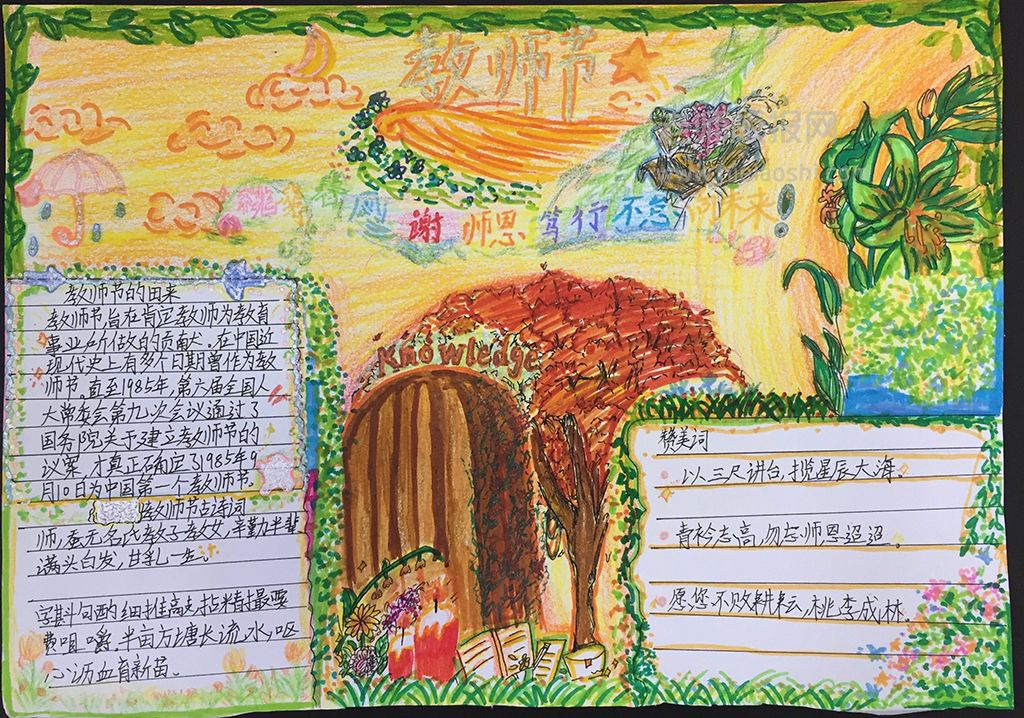 教师节
谢 师恩 笃行 不怠 向未来!
Knowledge
教师节的由来
教师节,旨在肯定教师为教育
事业所做的贡献。在中国近
现代史上有多个日期曾作为教
师节。直至1985年,第六届全国人
大常委会第九次会议通过了
国务院关于建立教师节的
议案,才真正确定了1985年9
月10日为中国第一个教师节.
教师节古诗词
师,亟无名氏教子教女,辛勤半辈
满头白发,甘乳一生.
字斟句酌细推高
费咀嚼.半亩方塘长流水,呕
心沥血育新苗。
赞美词
以三尺讲台,揽星辰大海。
青衿志高,勿忘师恩迢迢。
愿您不败耕耘,桃李成林.